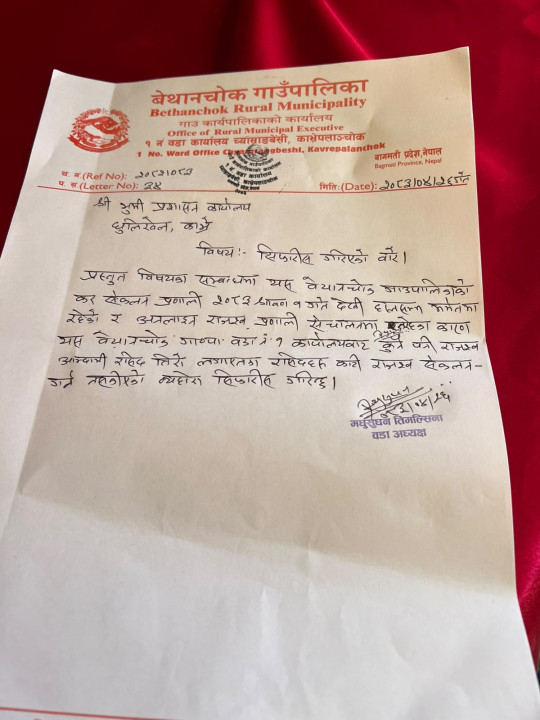 बेथानचोक गाउँपालिका
Bethanchok Rural Municipality
गाउँ कार्यपालिकाको कार्यालय
Office of Rural Municipal Executive
१ नं वडा कार्यालय च्यामराङबेसी, काभ्रेपलाञ्चोक
1 No. Ward Office Kavrepalanchok
बागमती प्रदेश, नेपाल
Bagmati Province, Nepal
च. नं.(Ref No): २०८२।०८३
प. सं.(Letter No): ३४
मिति:(Date): २०८३/०४/२६ गते
श्री भुमी प्रशासन कार्यालय
धुलिखेल, काभ्रे
विषय:- सिफारिस गरिएको बारे।
प्रस्तुत विषयका सम्बन्धमा यस बेथानचोक गाउपालिकाको
कर संकलन प्रणाली २०८३ श्रावण १ गते देखी हालसम्म
रहेको र अनलाइन राजश्व प्रणाली संचालनमा कारण
यस बेथानचोक गा०पा० वडा नं १ कार्यालयबाट कुनै पनी राजश्व
आम्दानी रसिद लगायतका काटी राजश्व संकलन-
सिफारिस गरिन्छ।
२०८३/०४/२६
मधुसुधन तिमल्सिना
वडा अध्यक्ष